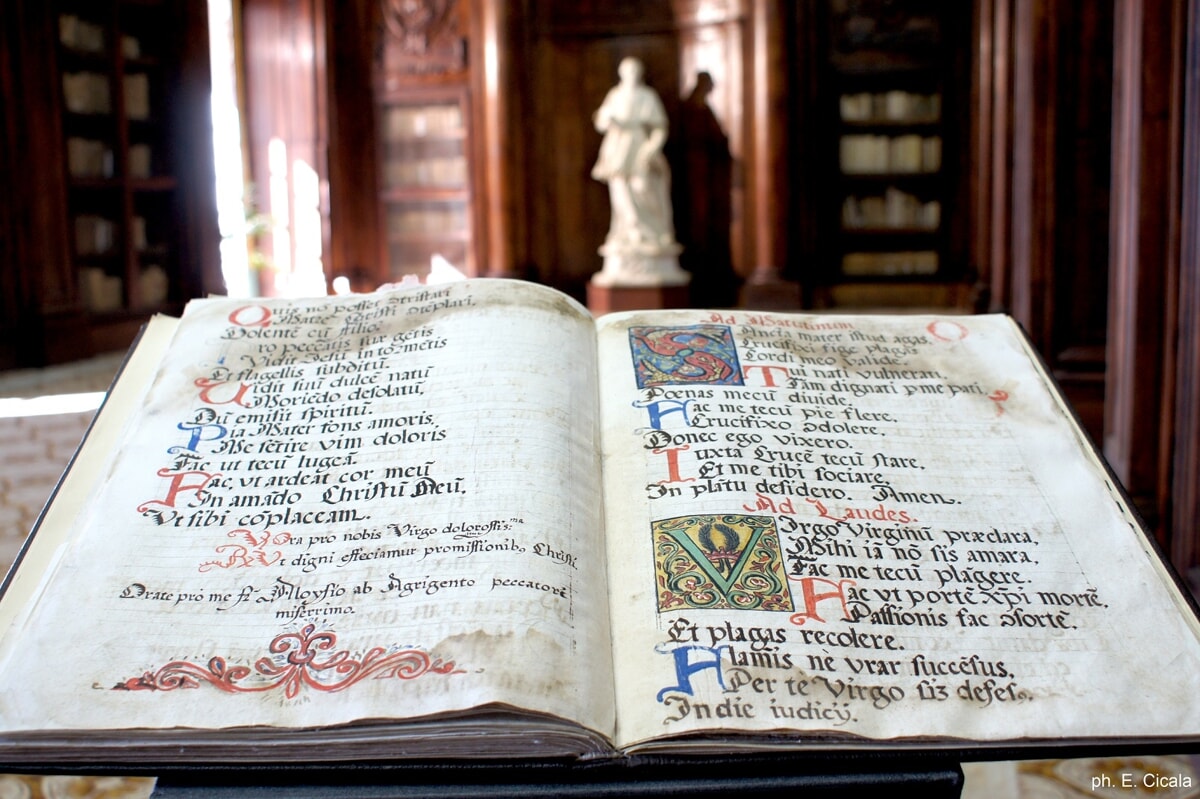 Quis nō posset ɔtristari
Matrē Christi ɔtēplari.
Dolentē cū filio.
ro peccatis suæ gētis
Vidit Iesū in tormētis
Et flagellis subditū.
Uidit suū dulcē natū
Moriēdo desolatū,
Dū emisit spiritū.
Pia Mater fons amoris,
Me sētire vim doloris
Fac ut tecū lugeā.
Fac, ut ardeat cor meū
In amādo Christū Deū.
Vt sibi cōplaceam.
Ora pro nobis Virgo dolorosiss:ma
Vt digni efficiamur promissionib, Christi.
Orate pro me fr. Alloysio ab Agrigento peccatore
miserrimo.
Ad Matutinum
Sancta mater istud agas.
Crucifixi fige plagas
Cordi meo valide
Tui nati vulnerati,
Tām dignati p me pati,
Pœnas mecū diuide.
Fac me tecū pie flere,
Crucifixo ɔdolere,
Donec ego vixero.
Iuxta Crucē tecū stare,
Et me tibi sociare
In plātu desidero. Amen.
Ad Laudes.
Virgo Virginū præclara,
Mihi iā nō sis amara,
Fac me tecū plāgere.
Fac vt portē Xpi mortē,
Passionis fac ɔsortē,
Et plagas recolere.
Flāmis nē vrar succēsus,
Per tē Virgo
In die iudicij.
ph. E. Cicala